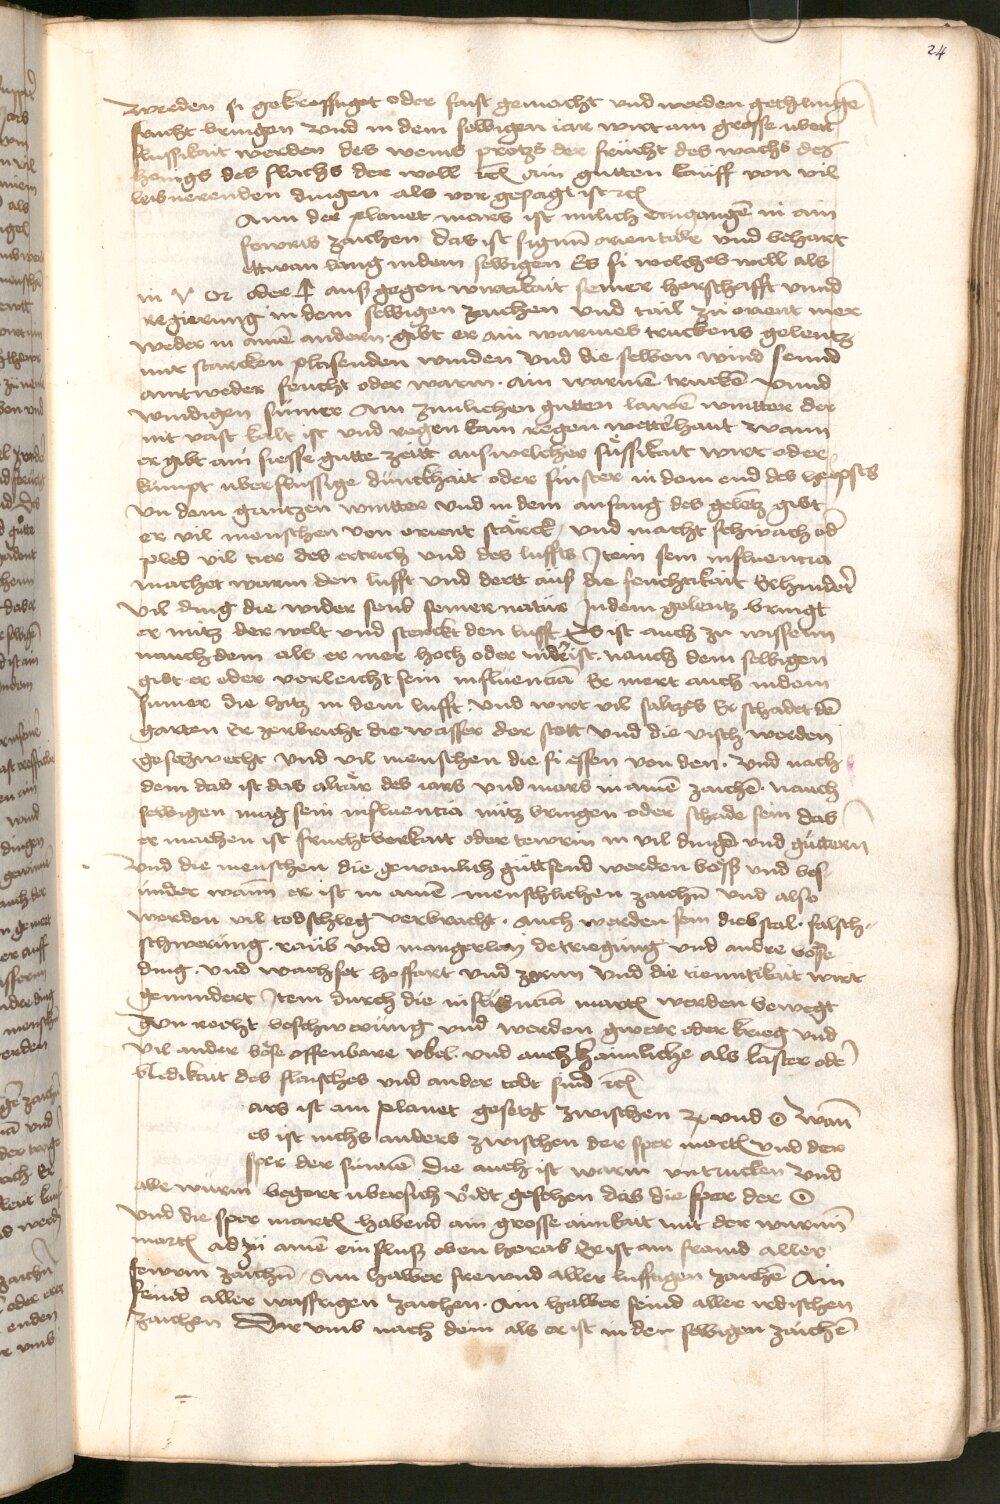 24
werden si gekressiget oder faist gemacht vnd werden gechlinge
frucht bringen vnd in dem selbigen iar wirt ain grosse vber
flussikait werden des weins protzs der frücht des wachs des
honigs des flachs der woll etc ain gutten lauff von vil
leibnerenden dingen als vor gesagt ist etc
Ann der planet mars ist milich eingangen in ain
fewris zaichen das ist signum orientale vnd behart
ettwan lang in dem selbigen Es si welches well als
in ♈ ♌ oder ♐ auss gegen wirtikait seiner herschafft vnnd
regierung in dem selbigen zaichen vnd tail zu orient mer
weder in ainem andern gibt er ain warmes truckens gelentz
mit starcken plasenden winden vnd die selben wind seind
antweder feucht oder warm. ain warmen trucken vnnd
windigen sumer Ain zimlichen gutten lawen wintter der
nit vast kalt ist vnd regen kain regen wetter haut wann
er gibt ain siesse gutte zeitt aus welcher süssikait wirt oder
kumpt vberflüssige dünckhait oder finster in dem end des herpsts
vn dem gantzen wintter vnd in dem anfang des gelentz gibt
er vil menschen von orient stärck / vnd macht schwach od
plod vil tier des ertrich vnd des luffts Item sein influencia
machet warm den lufft vnd dertt auss die feuchtikait Er hindert
vil ding die wider seind seiner natur In dem gelentz bringt
er nutz der welt vnd sterckt den lufft Es ist auch zu wissenn
nauch dem als er mer hoch oder nider ist. nauch dem selbigen
gibt er oder verleicht sein influencia Er mert auch in dem
sumer die hitz in dem lufft vnd wirt vil saltzes Er schadet den
garten Er zerbricht die wasser der stett vnd die visch werden
geschwecht vnd vil menschen die si essen von den. vnd nach
dem das ist das altär des iars vnd mars in ainem zaichen. nauch
selbigen mag sein influencia nütz bringen oder schade sein das
er machen ist fruchtberkait oder tewrin in vil dingen vnd güttern
vnd die menschen die gewonlich güttsend werden böss vnd bes
under wann er ist in ainem menschlichen zaichen vnd also
werden vil todschleg verbracht. auch werden sein diebstal. falsch
schwerüng. raub vnd mangerley betriegüng vnd andre böse
ding. vnd wachset hoffart vnd zorn vnd die diemütikait wirt
gemindert Item durch die influencia martis werden bewegt
Zu recht beschwerüng vnd werden gwerr oder krieg vnd
vil ander böse offenbare vbel. vnd auch haimliche als laster ode
blidikait des flaisches vnd ander todt sünd etc
ars ist ain planet gesetzt zwischen ♃ vnd ☉ wan
es ist nichs anders zwischen der sper martis vnd der
sper der sunnen die auch ist warm vn trucken vnd
alle wurm begert vbersich v'idt geschen das die sper der ☉
vnd die sper martis habend ain grosse ainikait mit der wurm
martis ad zü ainem einfluss oben herab Er ist ain freind aller
fewrin zaichen / Ain halber frewnd aller lufftigen zaichen Ain
feind aller wassrigen zaichen. Ain halber feind aller irdischen
zaichen Darvmb nach dem als er ist in der selbigen zaichen